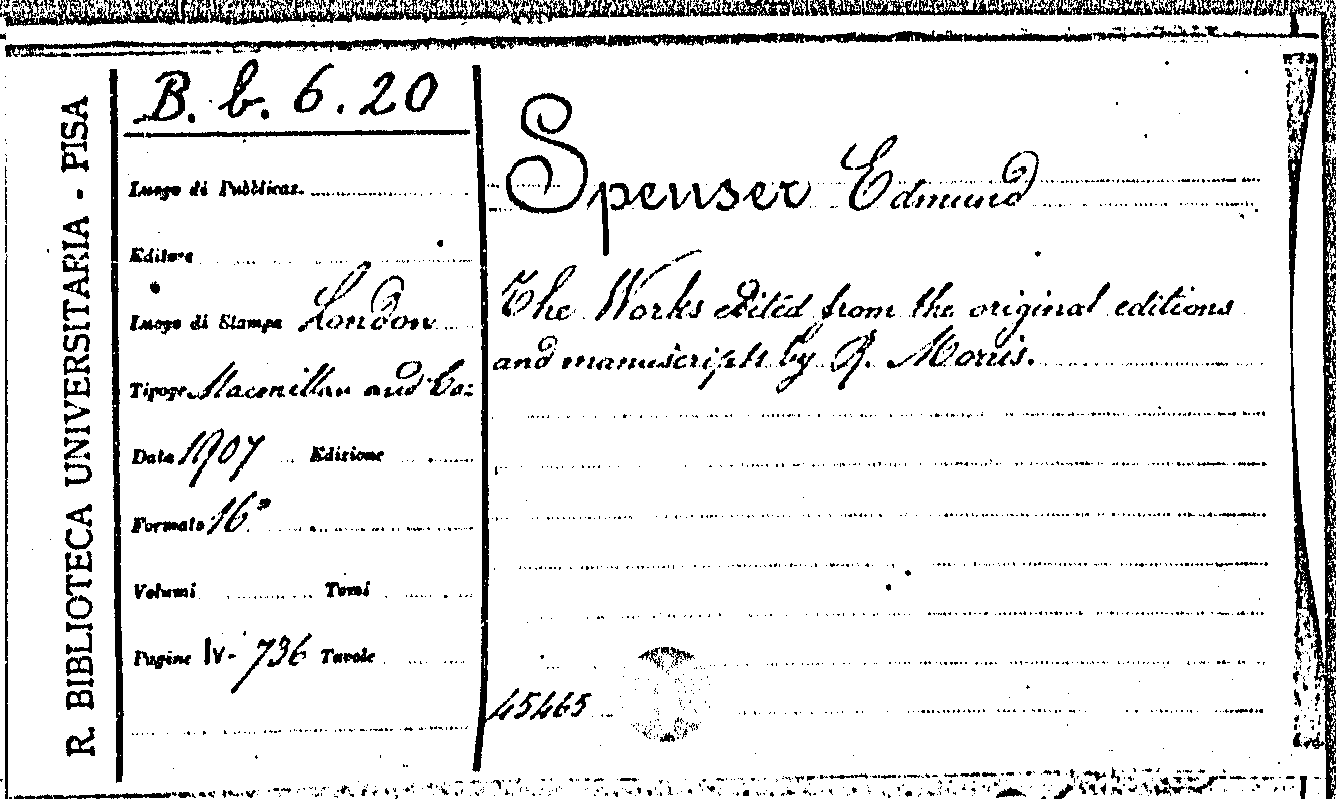 R. BIBLIOTECA UNIVERSITARIA - PISA
B. b. 6. 20
Luogo di Pubblicaz.
Editore
Luogo di Stampa London
Tipogr. Macmillan and Co:
Data 1907 Edizione
Formato 16°
Volumi Tomi
Pagine lv- 736 Tavole
Spenser Edmund
The Works edited from the original editions
and manuscripts by R. Morris.
45465